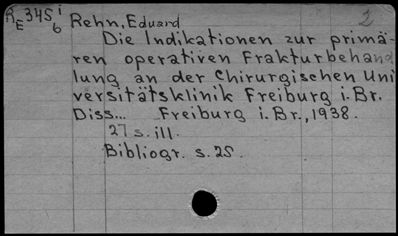 R E 345 i 6 Rehn, Eduard 2
Die Indikationen zur primä-
ren operativen Frakturbehand
lung an der Chirurgischen Uni
versitätsklinik Freiburg i. Br.
Diss... Freiburg i. Br., 1938.
27 s. ill.
Bibliogr. s. 25.